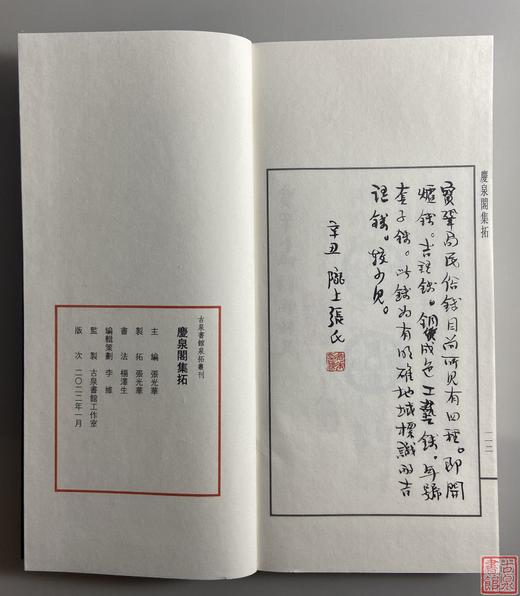 慶泉閣集拓
一二
寶鞏局民俗錢目前所見有四種。即開
爐錢。吉語錢。銅成色工藝錢。年號
套子錢。此錢為有明確地域標識的吉
語錢。較少見。
辛丑 隴上張氏
古泉書館泉拓叢刊
慶泉閣集拓
主編 張光華
製拓 張光華
書法 楊澤生
編輯策劃 李維
監製 古泉書館工作室
版次 二〇二二年一月
古泉書館